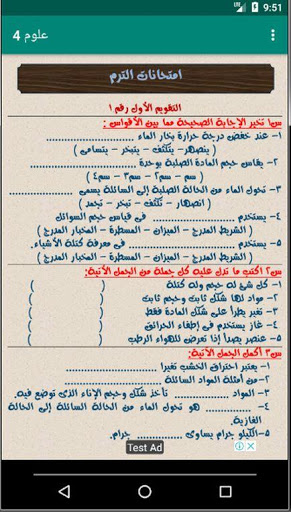 9:51
علوم 4
امتحانات الترم
التقويم الأول رقم ١
س١ تخير الإجابة الصحيحة مما بين الأقواس :
١- عند خفض درجة حرارة بخار الماء ..................
( ينصهر – يتكثف – يتبخر – يتسامى )
٢- يقاس حجم المادة الصلبة بوحدة ..................
( سم – سم٢ – سم٣ – سم٤ )
٣- تحول الماء من الحالة الصلبة إلى السائلة يسمى ............
( انصهار – تكثف – تبخر – تجمد )
٤- يستخدم .................. فى قياس حجم السوائل
( الشريط المدرج – الميزان – المسطرة – المخبار المدرج )
٥- يستخدم .................. فى معرفة كتلة الأشياء.
( الشريط المدرج – الميزان – المسطرة – المخبار المدرج )
س٢ اكتب ما تدل عليه كل جملة من الجمل الآتية:
١- كل شئ له حجم وله كتلة ( )
٢- مواد لها شكل ثابت وحجم ثابت ( )
٣- تغير يطرأ على شكل المادة فقط ( )
٤- غاز يستخدم فى إطفاء الحرائق ( )
٥- عنصر يصدأ إذا تعرض للهواء الرطب ( )
س٣ أكمل الجمل الآتية:
١- يعتبر احتراق الخشب تغيرا ..................
٢- من أمثلة المواد السائلة ..................
٣- المواد ............ تأخذ شكل وحجم الإناء الذى توضع فيه.
٤- ............ هو تحول الماء من الحالة السائلة إلى الحالة
الغازية.
٥- الكيلو جرام يساوى ............ جرام.
Test Ad